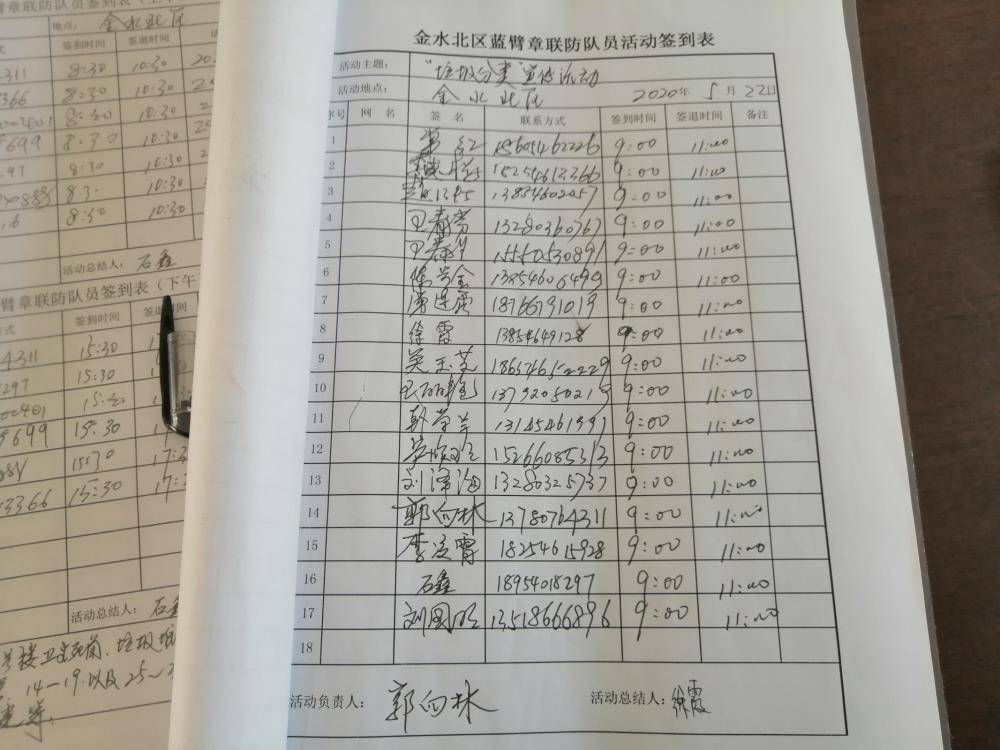 臂章联防队员签到表（上午
地点： 金水北区
式 签到时间 签退时间
4311 8:30 10:30
3366 8:30 10:30
8:30 10:30
5699 8:30 10:30
297 8:30 10:30
8:30 10:30
8:30 10:30
活动总结人： 石鑫
臂章联防队员签到表（下午
方式 签到时间 签退
4311 15:30
297 15:30
00401
5699 15:30
15:30 17:3
3366 15:30 17:
活动总结人： 石鑫
14-19以及25~2
金水北区蓝臂章联防队员活动签到表
活动主题： “垃圾分类”宣传活动
活动地点： 金水北区 2020年 5月22日
序号 网 名 签 名 联系方式 签到时间 签退时间 备注
1 15605462226 9:00 11:00
2 15254613366 9:00 11:00
3 13854602057 9:00 11:00
4 王春芳 13280360767 9:00 11:00
5 15550530891 9:00 11:00
6 13854606499 9:00 11:00
7 18766191019 9:00 11:00
8 徐霞 13854649128 9:00 11:00
9 吴玉芝 9:00 11:00
10 13792050219 9:00 11:00
11 13145461991 9:00 11:00
12 15266085313 9:00 11:00
13 刘泽海 13280325737 9:00 11:00
14 郭向林 13780764311 9:00 11:00
15 李凌霄 18254615928 9:00 11:00
16 石鑫 18954018297 9:00 11:00
17 刘国旺 13518666896 9:00 11:00
18
活动负责人： 郭向林 活动总结人： 徐霞